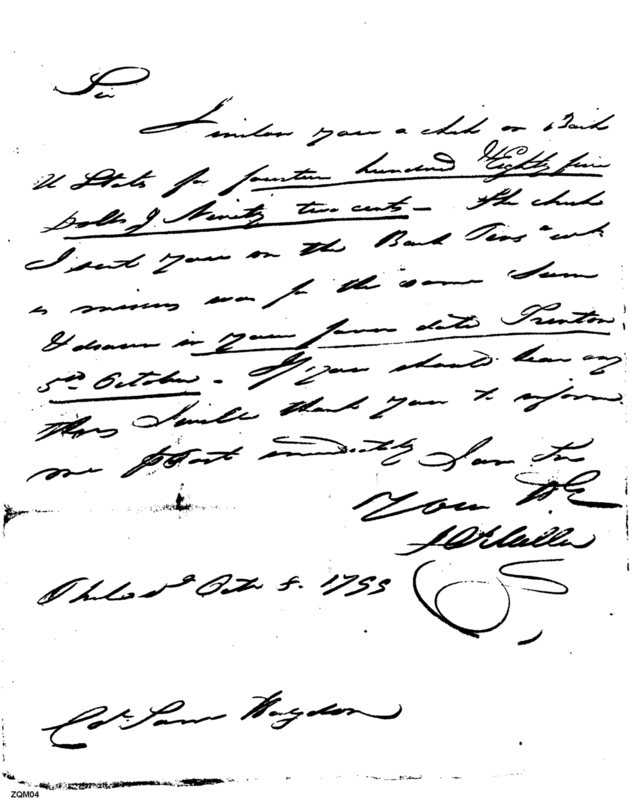 Sir
I inclose you a check on Bank
U States for fourteen hundred & Eighty five
Dolls & Ninety two cents - the check
I sent you on the Bank Pens a wch
is missing was for the same Sum
& drawn in your favor date Trenton
5th October - If you should hear any
thing I will thank you to inform
me immediately I am Sir
Your
J Miller
Philad Octr 8. 1799
Col. Hogdon
ZQM04